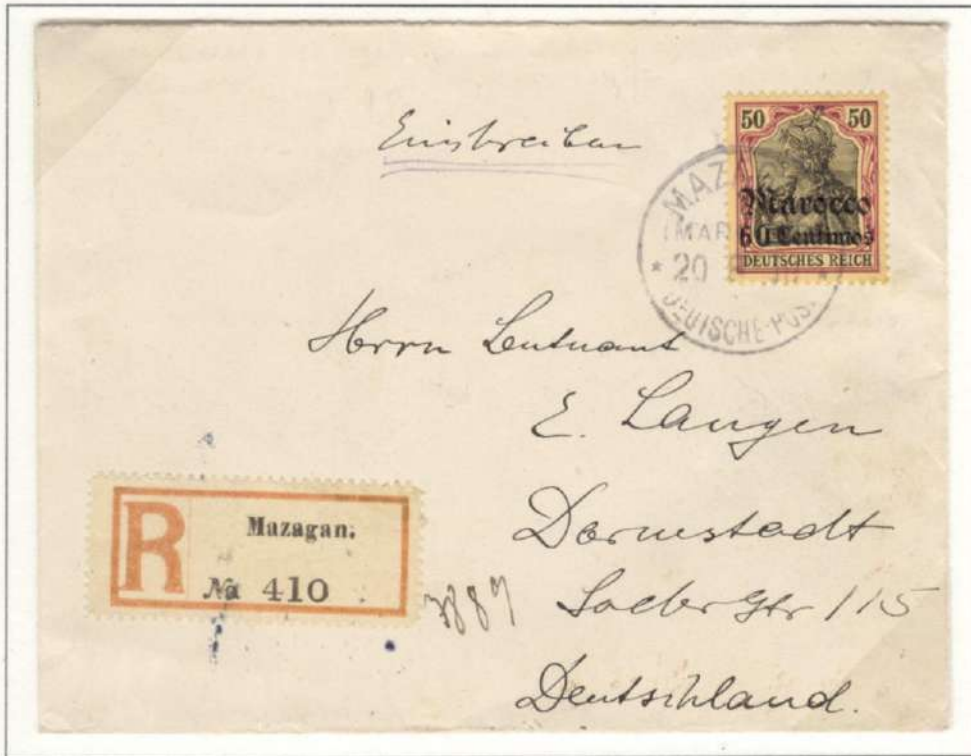 Einschreiben
50 50
Marocco
60 Centimos
DEUTSCHES REICH
MAZ
MAR
* 20 *
DEUTSCHE-POST
Herrn Leutnant
E. Langen
Darmstadt
115
Deutschland.
R
Mazagan.
No 410
3887